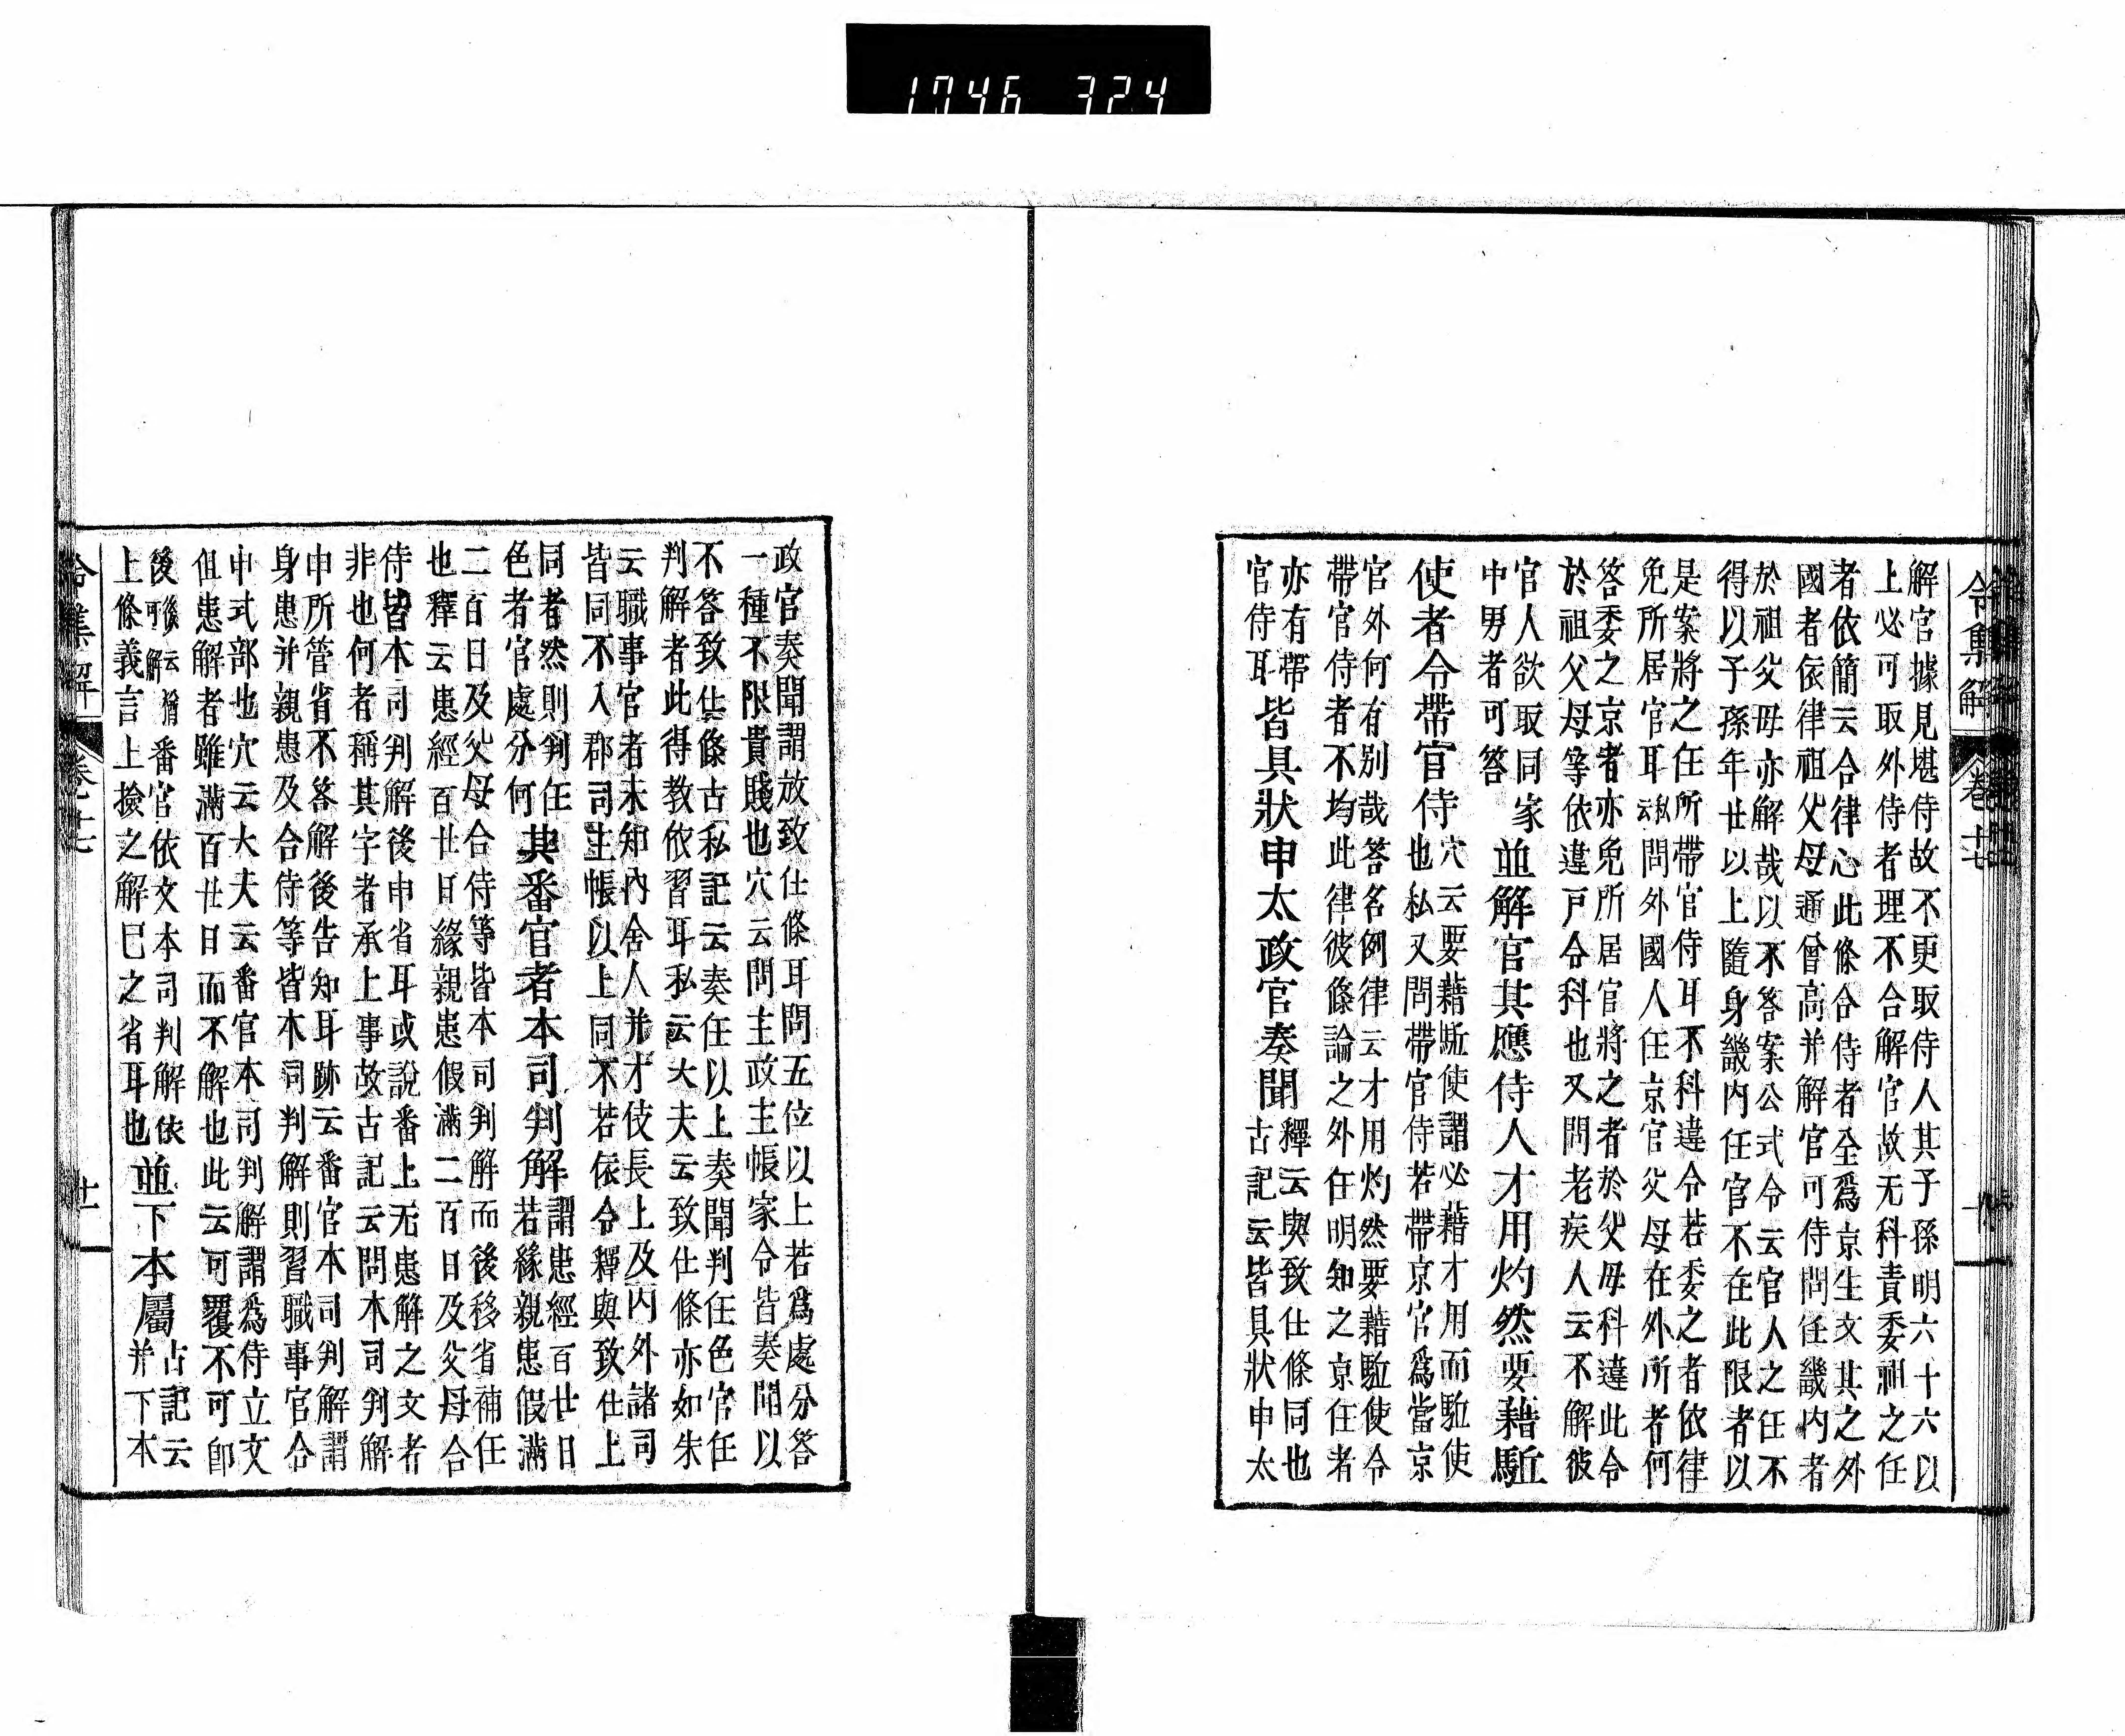 1746 324
令集解 卷十七
解官據見堪侍故不更取侍人其子孫明六十六以
上必可取外侍者理不合解官故无科責委祖之任
者依簡云合律心此條合侍者全爲京生文其之外
國者依律祖父母通曾高并解官可侍問任畿内者
於祖父母亦解哉以不答案公式令云官人之任不
得以子孫年廿以上隨身畿内任官不在此限者以
是案將之任所帶官侍耳不科違令若委之者依律
免所居官耳私云問外國人任京官父母在外所者何
答委之京者亦免所居官將之者於父母科違此令
於祖父母等依違戸令科也又問老疾人云不解彼
官人欲取同家
中男者可答
並解官其應侍人才用灼然要藉駈
使者令帶官侍
穴云要藉駈使謂必藉才用而駈使
也私又問帶官侍若帶京官爲當京
官外何有别哉答名例律云才用灼然要藉駈使令
帶官侍者不均此律彼條論之外任明知之京任者
亦有帶
官侍耳
皆具狀申太政官奏聞
釋云與致仕條同也
古記云皆具狀申太
政官奏聞謂放致仕條耳問五位以上若爲處分答
一種不限貴賤也穴云問主政主帳家令皆奏聞以
不答致仕條古私記云奏任以上奏聞判任色官任
判解者此得教依習耳私云大夫云致仕條亦如朱
云職事官者未知内舍人并才伎長上及内外諸司
皆同不入郡司主帳以上同不若依令釋與致仕上
同者然則判任
色者官處分何
其番官者本司判解
謂患經百廿日
若緣親患假滿
二百日及父母合侍等皆本司判解而後移省補任
也釋云患經百廿日緣親患假滿二百日及父母合
侍皆本司判解後申省耳或說番上无患解之文者
非也何者稱其字者承上事故古記云問本司判解
申所管省不答解後告知耳跡云番官本司判解謂
身患并親患及合侍等皆本司判解則習職事官合
申式部也穴云大夫云番官本司判解謂爲侍立文
但患解者雖滿百廿日而不解也此云可覆不可卽
後後云揩可解番官依文本司判解依
上條義言上撿之解已之省耳也
並下本屬
古記云
并下本
令集解 卷十七 廿一